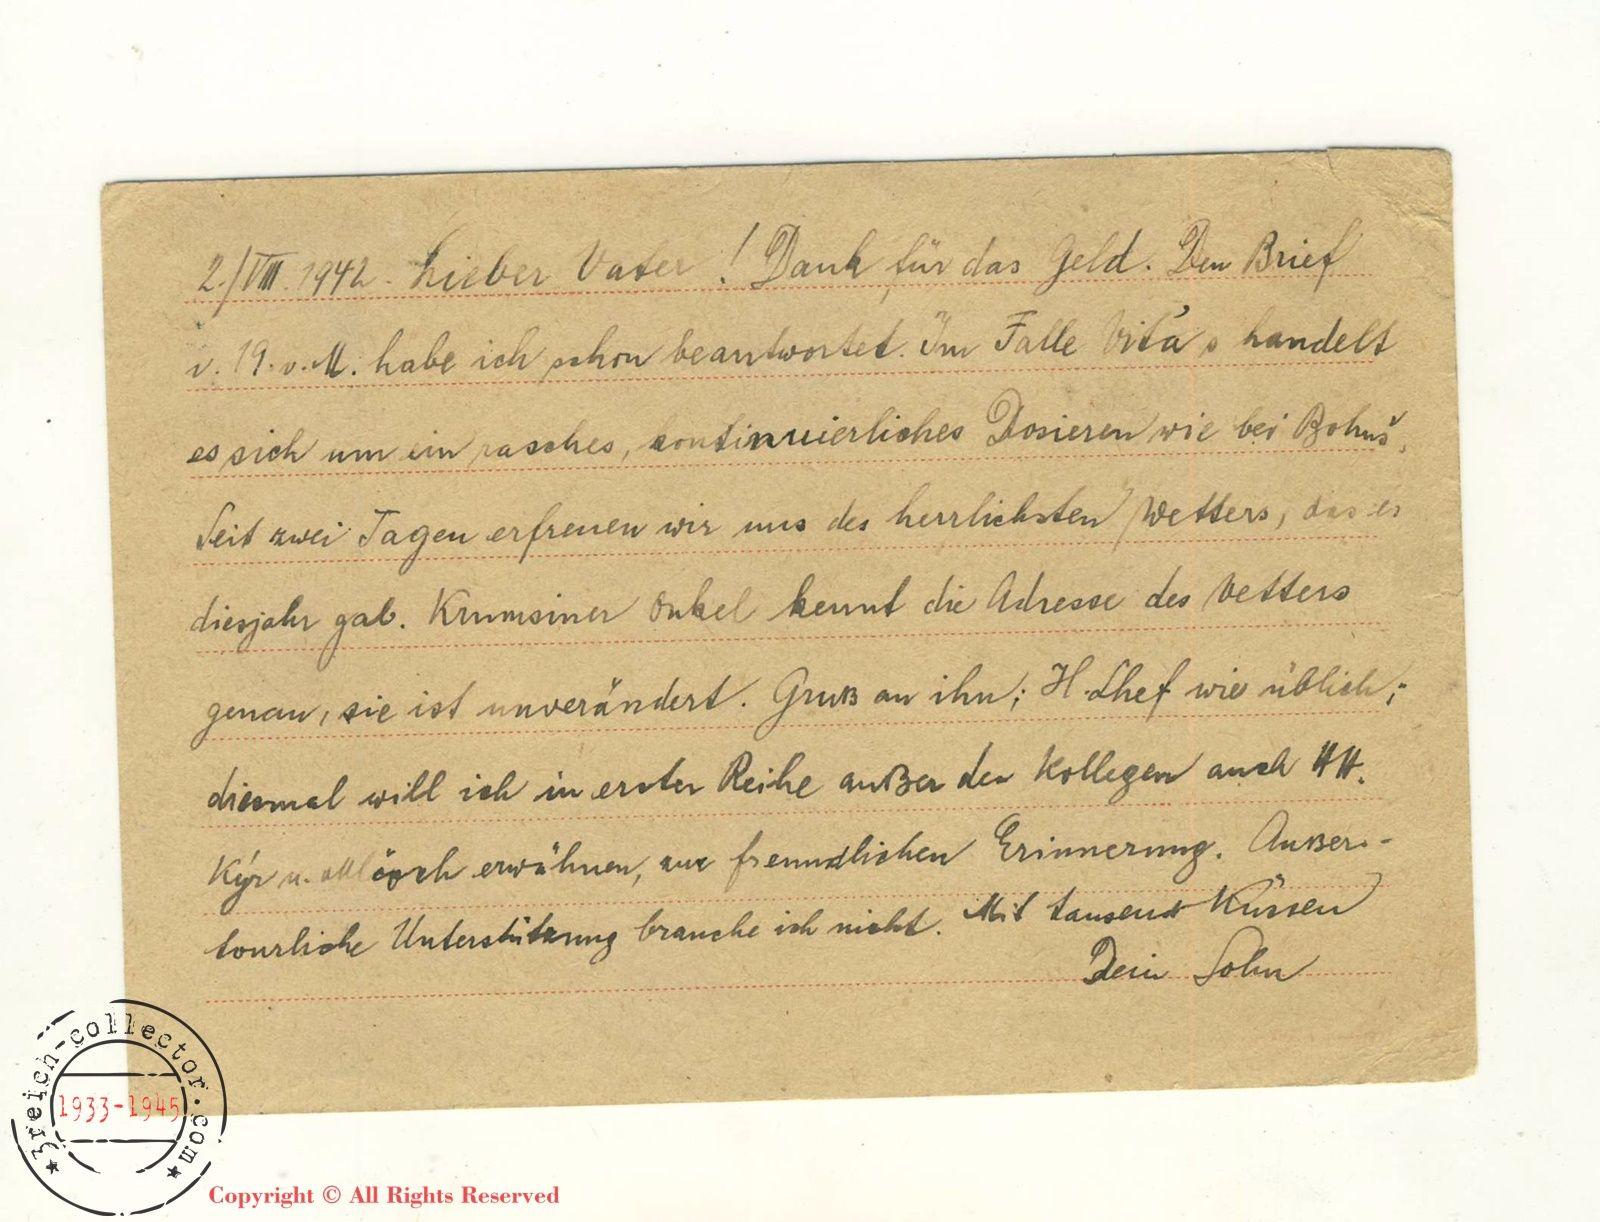 2./VIII. 1942. Lieber Vater! Dank für das Geld. Den Brief
v. 19. v. M. habe ich schon beantwortet. Im Falle Vítá's handelt
es sich um ein rasches, kontinuierliches Dosieren wie bei Bohuš.
Seit zwei Tagen erfreuen wir uns des herrlichsten Wetters, das es
diesjahr gab. Krumsiner Onkel kennt die Adresse des Vetters
genau, sie ist unverändert. Gruß an ihn; H. Chef wie üblich;
diesmal will ich in erster Reihe außer den Kollegen auch HH.
Kýr u. erwähnen, zur freundlichen Erinnerung. Außer-
tourliche Unterstützung brauche ich nicht. Mit tausend Küssen
Dein Sohn
3reich-collector.com
1933-1945
Copyright © All Rights Reserved